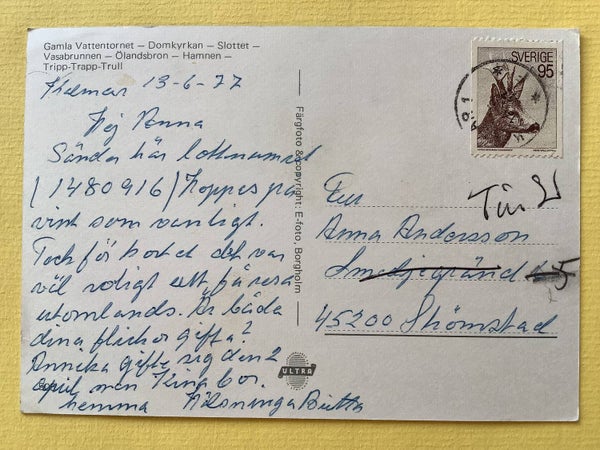 Gamla Vattentornet — Domkyrkan — Slottet —
Vasabrunnen — Ölandsbron — Hamnen —
Tripp-Trapp-Trull
Kalmar 13-6-77
Hej Anna
Sänder här lottnumret
(1480916) Hoppas på
vinst som vanligt.
Tack för kortet det var
väl roligt att få resa
utomlands. Är båda
dina flickor gifta?
Annika gifte sig den 2
april men King bor
hemma Hälsningar Britta
Färgfoto & copyright: E-foto, Borgholm
ULTRA
SVERIGE
95
Fru
Anna Andersson
Smedjegränd
45200 Strömstad